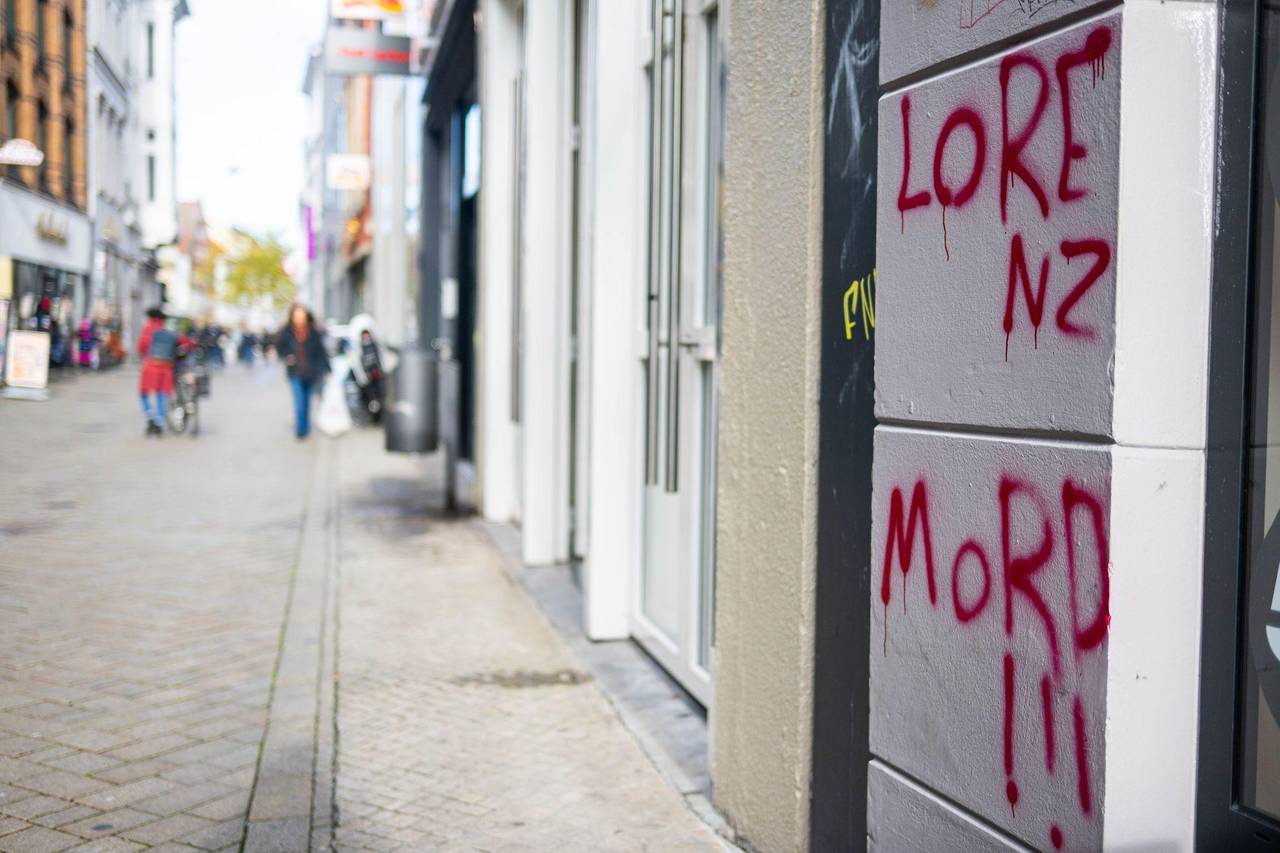 LORE
NZ
MORD
!!!
FN